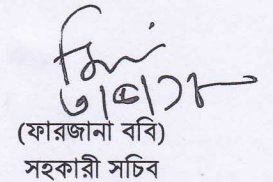 (ফারজানা ববি)
সহকারী সচিব